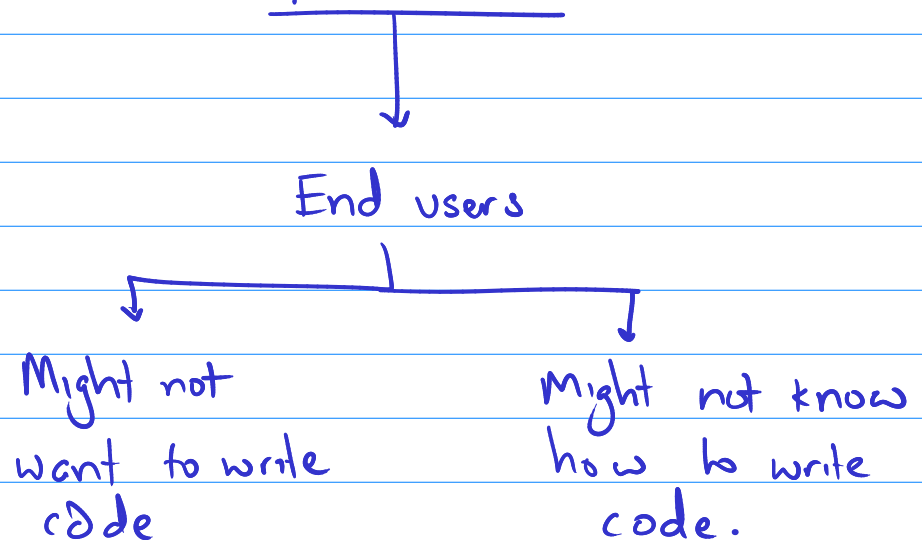 End users
Might not
want to write
code
Might not know
how to write
code.